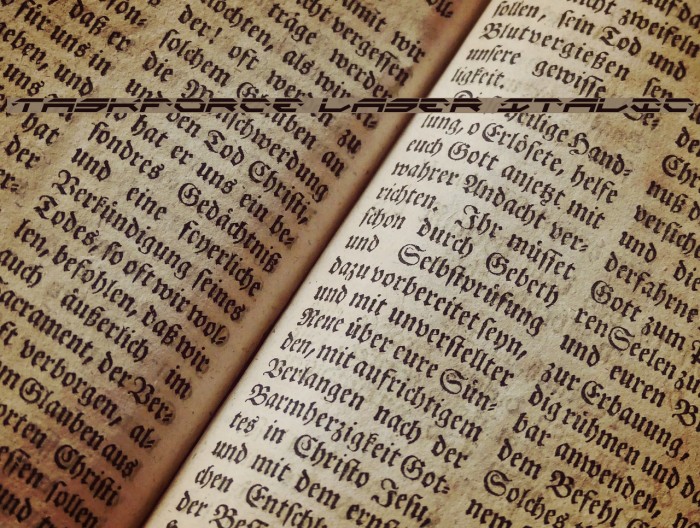 TASKFORCE LASER ITALIC
daß er
für uns in
eben, und
uns
hat
der
damit wir
nicht vergessen
träge werde
möchten, als wir
der! oft werden zu
solchem Glauben an
die Menschwerdung
den Tod Christi,
so hat er uns ein be-
sondres Gedächtniß
und eine feyerliche
Verkündigung seines
Todes, so oft wir wol-
len, befohlen, daß wir
auch äußerlich im
Sacrament, der Ver-
ft verborgen, al-
m Glauben aus
orten Christi
essen sollen
und
sollen, sein Tod und
Blutvergießen sey
unsere gewisse Se-
ligkeit.
Die heilige Hand-
lung, o Erlösete, helfe
euch Gott anjetzt mit
wahrer Andacht ver-
richten. Ihr müsset
schon durch Gebeth
und Selbstprüfung
dazu vorbereitet seyn,
und mit unverstellter
Reue über eure Sün-
den, mit aufrichtigem
Verlangen nach der
Barmherzigkeit Got-
tes in Christo Jesu,
und mit dem ernst
chen Entschl
der Bess
nicht zweifeln
nuß
versich
und
derfahrne
Gott zum
ren Seelen zu
und euren
zur Erbauung,
dig rühmen und
bar anwenden,
dem Befehl
Solches
nem